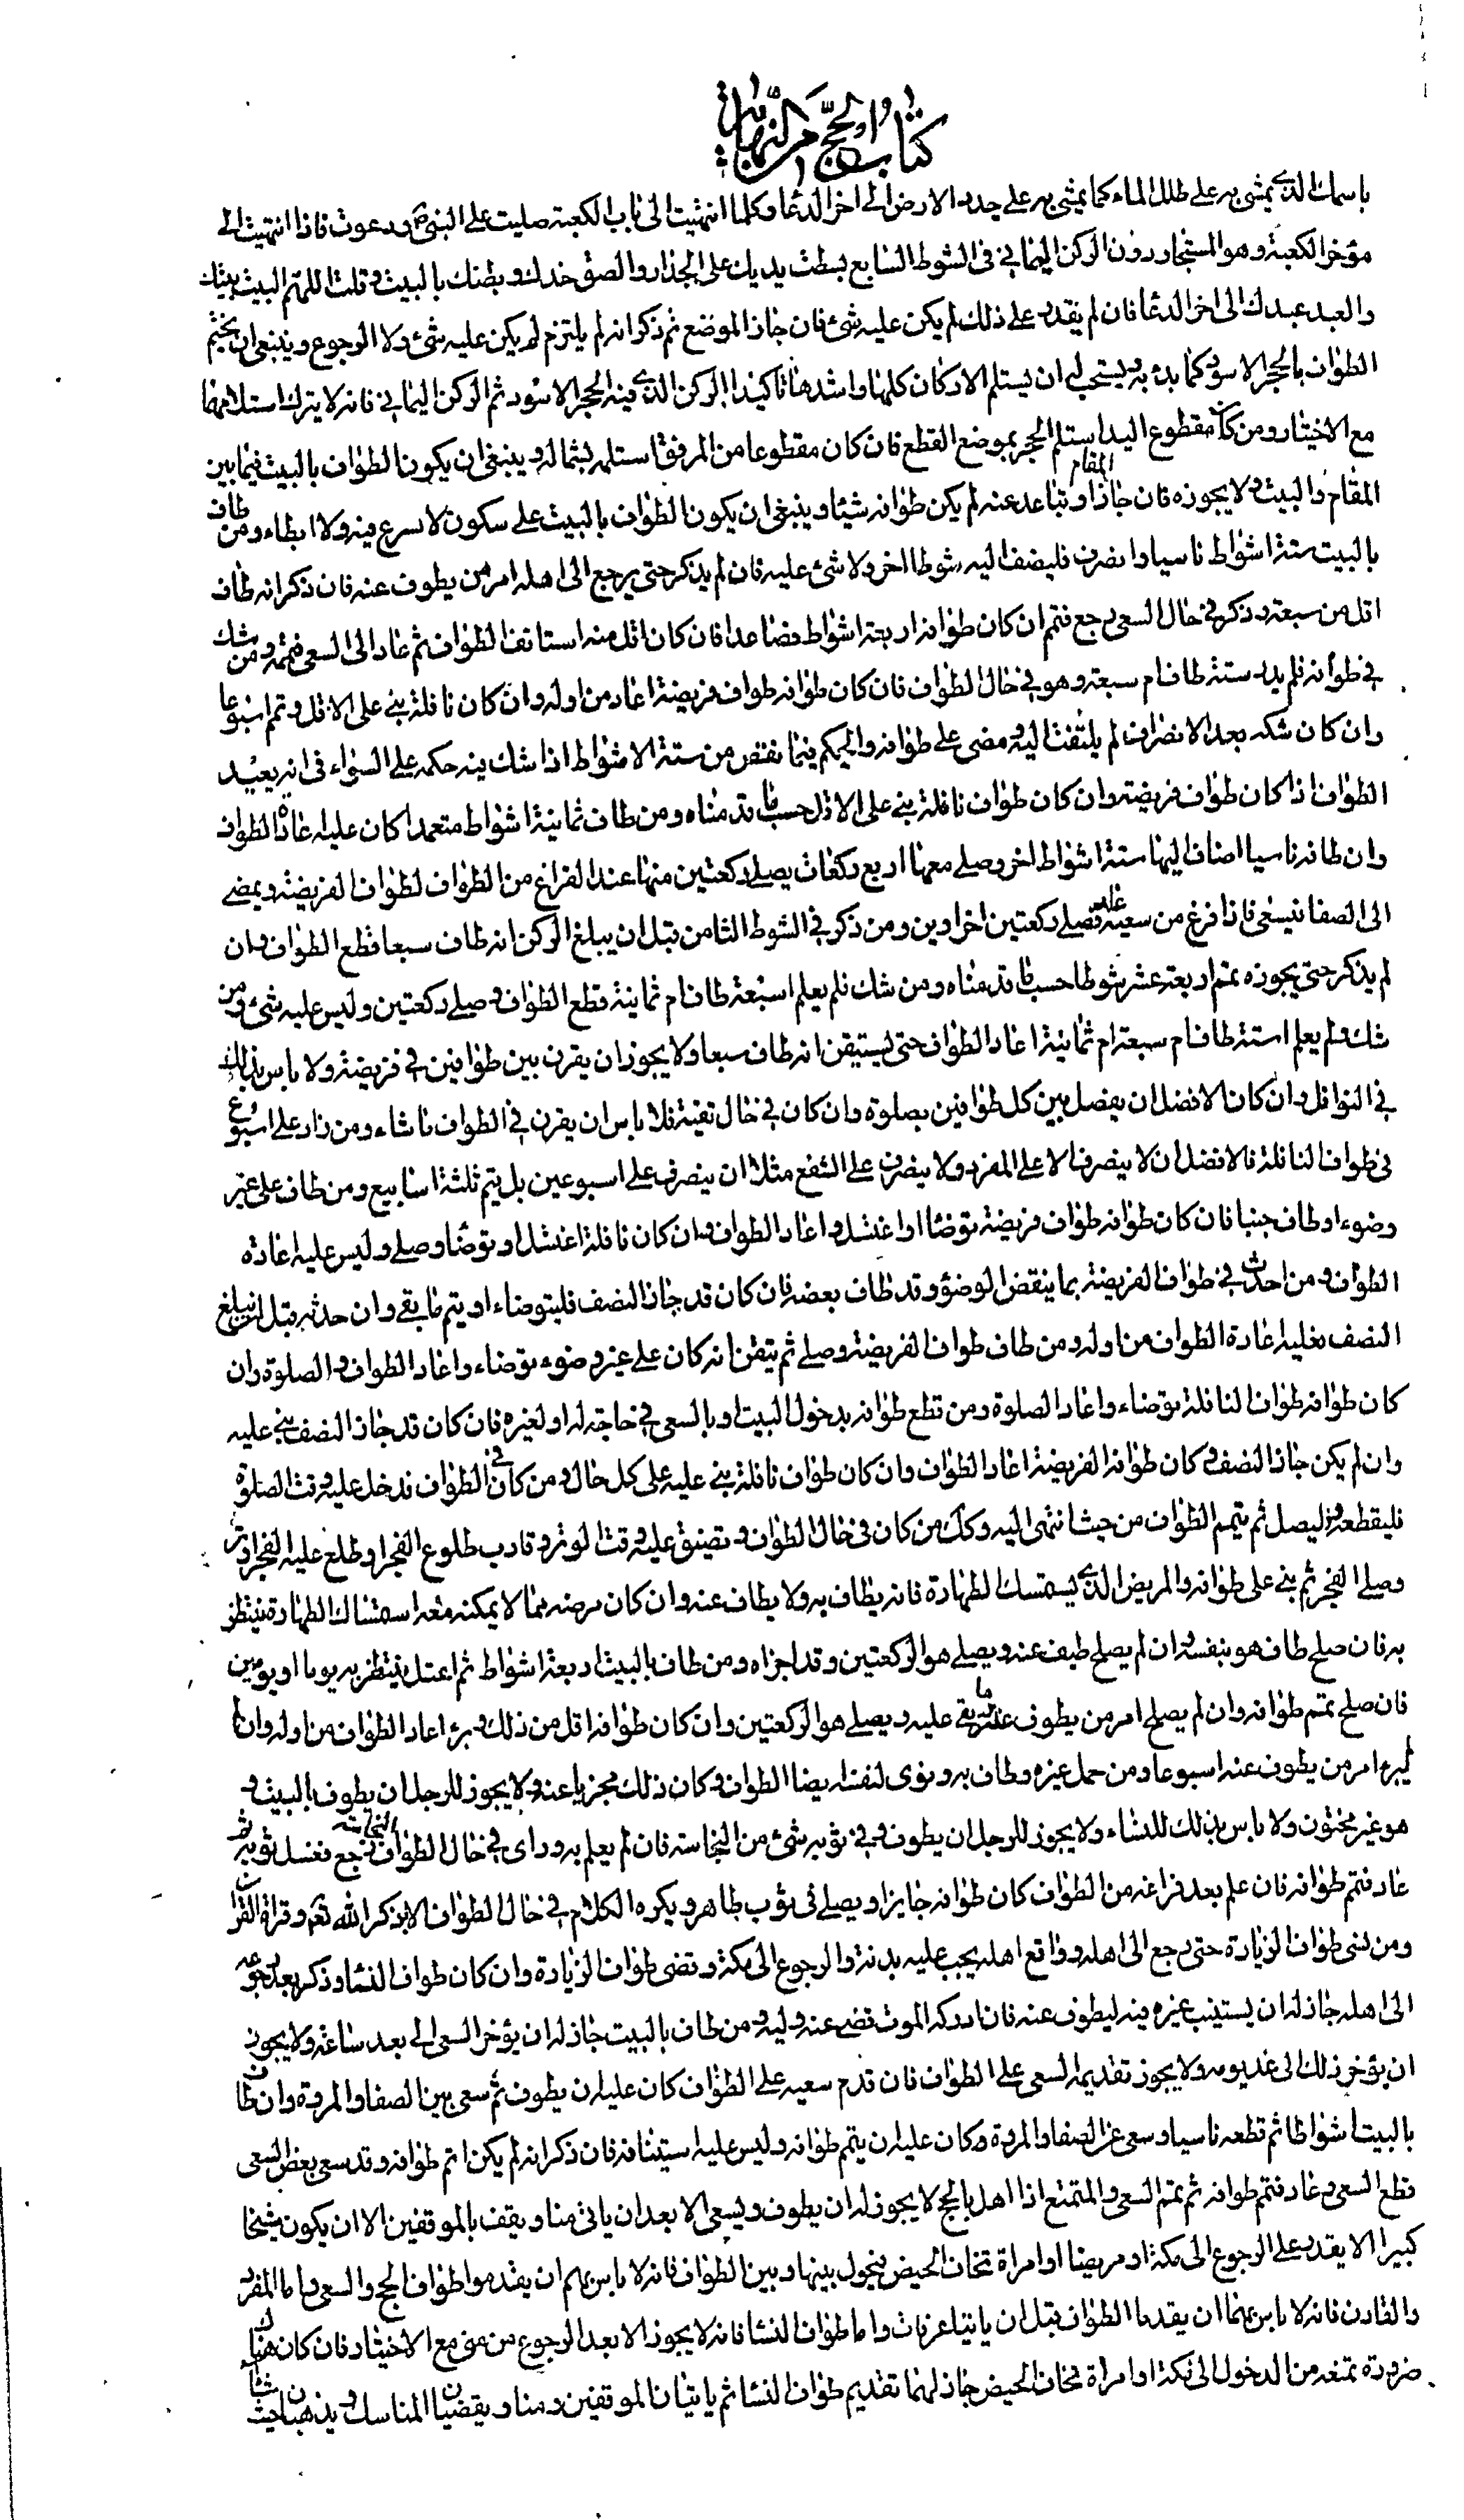 كتاب الحج من النهاية
باسمك الذي يمشي به على طلل الماء كما يمشي به على جدد الارض الى اخر الدعا وكلما انتهيت الى باب الكعبة صليت على النبي ص ودعوت فاذا انتهيت الى
مؤخر الكعبة وهو المستجار دون الركن اليماني في الشوط السابع بسطت يديك على الجدار والصق خدك وبطنك بالبيت وقلت اللهم البيت بيتك
والعبد عبدك الى اخر الدعا فان لم يقدر على ذلك لم يكن عليه شئ فان جاز الموضع ثم ذكر انه لم يلتزم لم يكن عليه شئ ولا الرجوع وينبغي ان يختم
الطواف بالحجر الاسود كما بدء به ويستحب له ان يستلم الاركان كلها واشدها تاكيدا الركن الذي فيه الحجر الاسود ثم الركن اليماني فانه لا يترك استلامهما
مع الاختيار ومن كان مقطوع اليد استلم الحجر بموضع القطع فان كان مقطوعا من المرفق استلمه بشماله وينبغي ان يكون الطواف بالبيت فيما بين
المقام والبيت ولا يجوزه فان جاز المقام او تباعد عنه لم يكن طوافه شيئا وينبغي ان يكون الطواف بالبيت على سكون لا سرع فيه ولا ابطاء ومن طاف
بالبيت ستة اشواط ناسيا وانصرف فليضف اليه شوطا اخر ولا شئ عليه فان لم يذكر حتى يرجع الى اهله امر من يطوف عنه فان ذكر انه طاف
اقل من سبعة وذكر في حال السعي رجع فتمم ان كان طوافه اربعة اشواط فصاعدا فان كان اقل منه استانف الطواف ثم عاد الى السعي فتممه ومن شك
في طوافه فلم يدر ستة طاف ام سبعة وهو في حال الطواف فان كان طوافه طواف فريضة اعاد من اوله وان كان نافلة بنى على الاقل وتمم اسبوعا
وان كان شكه بعد الانصراف لم يلتفت اليه ومضى على طوافه والحكم فيما نقص من ستة الاشواط اذا شك فيه حكمه على السواء في انه يعيد
الطواف اذا كان طواف فريضة وان كان طواف نافلة بنى على الاقل حسب ما قدمناه ومن طاف ثمانية اشواط متعمدا كان عليه اعادة الطواف
وان طافه ناسيا اضاف اليها ستة اشواط اخر وصلى معها اربع ركعات يصلي ركعتين منها عند الفراغ من الطواف لطواف الفريضة ويمضي
الى الصفا فيسعى فاذا فرغ من سعيه عاد فصلى ركعتين اخراوين ومن ذكر في الشوط الثامن قبل ان يبلغ الركن انه طاف سبعا قطع الطواف وان
لم يذكر حتى يجوزه تمم اربعة عشر شوطا حسب ما قدمناه ومن شك فلم يعلم اسبعة طاف ام ثمانية قطع الطواف وصلى ركعتين وليس عليه شئ ومن
شك ولم يعلم استة طاف ام سبعة ام ثمانية اعاد الطواف حتى يستيقن انه طاف سبعا ولا يجوز ان يقرن بين طوافين في فريضة ولا باس بذلك
في النوافل وان كان الافضل ان يفصل بين كل طوافين بصلوة وان كان في حال تقية فلا باس ان يقرن في الطواف ماشاء ومن زاد على اسبوع
في طواف النافلة فالافضل ان لا ينصرف الا على المفرد ولا ينصرف على الشفع مثلا ان ينصرف على اسبوعين بل يتم ثلثة اسابيع ومن طاف على غير
وضوء او طاف جنبا فان كان طوافه طواف فريضة توضا او اغتسل واعاد الطواف وان كان نافلة اغتسل او توضا وصلى وليس عليه اعادة
الطواف ومن احدث في طواف الفريضة بما ينقض الوضؤ وقد طاف بعضه فان كان قد جاز النصف فليتوضاء او يتم ما بقي وان حدثه قبل ان يبلغ
النصف فعليه اعادة الطواف من اوله ومن طاف طواف الفريضة وصلى ثم تيقن انه كان على غير وضوء توضاء واعاد الطواف والصلوة وان
كان طوافه طواف النافلة توضاء واعاد الصلوة ومن قطع طوافه بدخول البيت او بالسعي في حاجة له او لغيره فان كان قد جاز النصف بنى عليه
وان لم يكن جاز النصف وكان طوافه الفريضة اعاد الطواف وان كان طواف نافلة بنى عليه على كل حال ومن كان في الطواف فدخل عليه وقت الصلوة
فليقطعه وليصل ثم يتمم الطواف من حيث انتهى اليه وكك من كان في حال الطواف وتضيق عليه وقت الوتر وقارب طلوع الفجر او طلع عليه الفجر اوتر
وصلى الفجر ثم بنى على طوافه والمريض الذي يستمسك الطهارة فانه يطاف به ولا يطاف عنه وان كان مرضه مما لا يمكنه معه استمساك الطهارة ينتظر
به فان صلح طاف هو بنفسه وان لم يصلح طيف عنه ويصلي هو الركعتين وقد اجزاه ومن طاف بالبيت اربعة اشواط ثم اعتل ينتظر به يوما او يومين
فان صلح تمم طوافه وان لم يصلح امر من يطوف عنه ما بقي عليه ويصلي هو الركعتين وان كان طوافه اقل من ذلك وبرء اعاد الطواف من اوله وان لم
يبرء امر من يطوف عنه اسبوعا ومن حمل غيره وطاف به ونوى لنفسه ايضا الطواف وكان ذلك مجزيا عنه ولا يجوز للرجل ان يطوف بالبيت و
هو غير مختون ولا باس بذلك للنساء ولا يجوز للرجل ان يطوف وفي ثوبه شئ من النجاسة فان لم يعلم به وراى في حال الطواف النجاسة رجع فغسل ثوبه ثم
عاد فتمم طوافه فان علم بعد فراغه من الطواف كان طوافه جايزا ويصلي في ثوب طاهر ويكره الكلام في حال الطواف الا بذكر الله تعم وقراءة القران
ومن نسي طواف الزيارة حتى رجع الى اهله وواقع اهله يجب عليه بدنة والرجوع الى مكة وقضى طواف الزيارة وان كان طواف النسا وذكر بعد رجوعه
الى اهله جاز له ان يستنيب غيره فيه ليطوف عنه فان ادركه الموت قضى عنه وليه ومن طاف بالبيت جاز له ان يؤخر السعي الى بعد ساعة ولا يجوز
ان يؤخر ذلك الى غد يومه ولا يجوز تقديم السعي على الطواف فان قدم سعيه على الطواف كان عليه ان يطوف ثم سعى بين الصفا والمروة وان طاف
بالبيت اشواطا ثم قطعه ناسيا وسعى عن الصفا والمروة وكان عليه ان يتمم طوافه وليس عليه استينافه فان ذكر انه لم يكن اتم طوافه وقد سعى بعض السعي
قطع السعي وعاد فتمم طوافه ثم تمم السعي والمتمتع اذا اهل بالحج لا يجوز له ان يطوف ويسعى الا بعد ان ياتي منا ويقف بالموقفين الا ان يكون شيخا
كبيرا لا يقدر على الرجوع الى مكة او مريضا او امراة تخاف الحيض فيحول بينها وبين الطواف فانه لا باس بهم ان يقدموا طواف الحج والسعي واما المفرد
والقارن فانه لا باس بهما ان يقدما الطواف قبل ان ياتيا عرفات واما طواف النسا فانه لا يجوز الا بعد الرجوع من منى مع الاختيار فان كان هناك
ضرورة تمنعه من الدخول الى مكة او امراة تخاف الحيض جاز لهما تقديم طواف النسا ثم ياتيان الموقفين ومنا ويقضيان المناسك ويذهبان حيث شاا